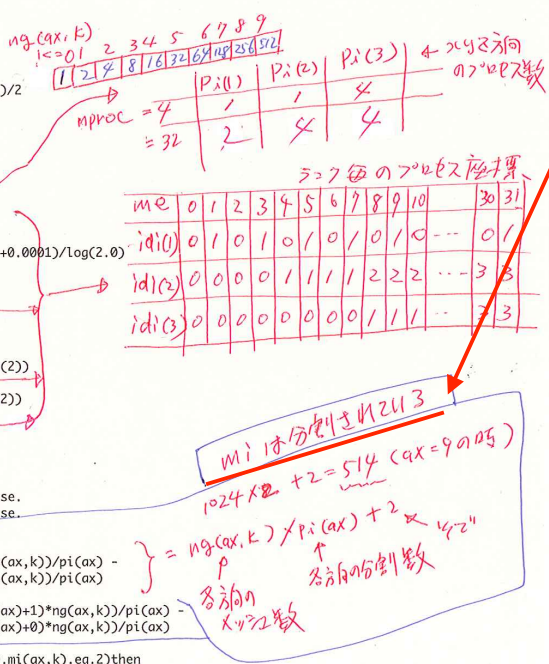 ng(ax,k)
k<=0 1 2 3 4 5 6 7 8 9
1 2 4 8 16 32 64 128 256 512
)/2
Pi(1) Pi(2) Pi(3) ← xyz方向
のプロセス数
nproc = 4 1 1 4
= 32 2 4 4
ランク毎のプロセス座標
me 0 1 2 3 4 5 6 7 8 9 10 30 31
+0.0001)/log(2.0)
idi(1) 0 1 0 1 0 1 0 1 0 1 0 ... 0 1
idi(2) 0 0 0 0 1 1 1 1 2 2 2 ... 3 3
idi(3) 0 0 0 0 0 0 0 0 1 1 1 ... 3 3
(2))
2))
miは分割されている
1024 × 2 + 2 = 514 (ax=9の時)
se.
se.
(ax,k))/pi(ax) -
(ax,k))/pi(ax)
= ng(ax,k)/pi(ax) + 2
各方向の
メッシュ数
各方向の分割数
ax)+1)*ng(ax,k))/pi(ax) -
ax)+0)*ng(ax,k))/pi(ax)
.mi(ax,k).eq.2)then